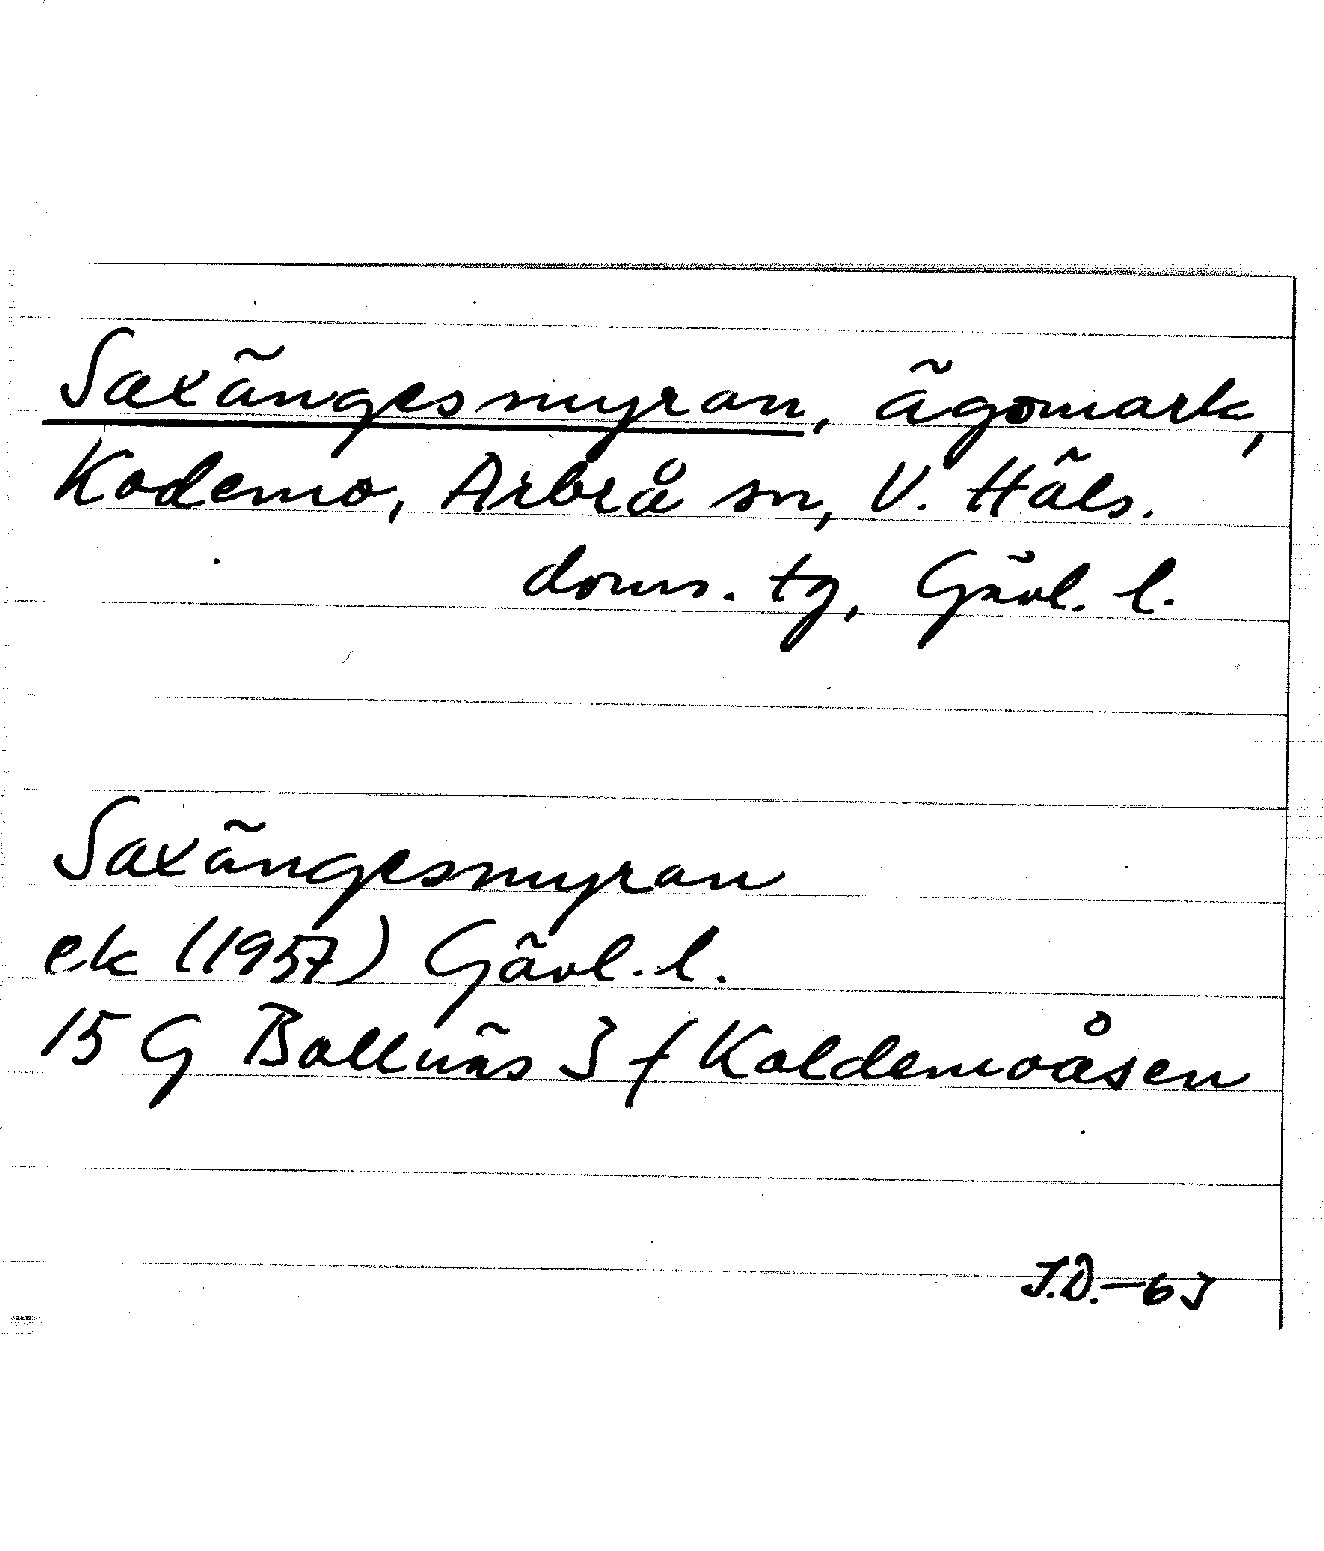 Saxängesmyran, ägomark,
Kodemo, Arbrå sn, V. Häls.
doms. tg, Gävl. l.
Saxängesmyran
ek (1957) Gävl. l.
15 G Bollnäs 3 f Koldemoåsen
J.D.-63